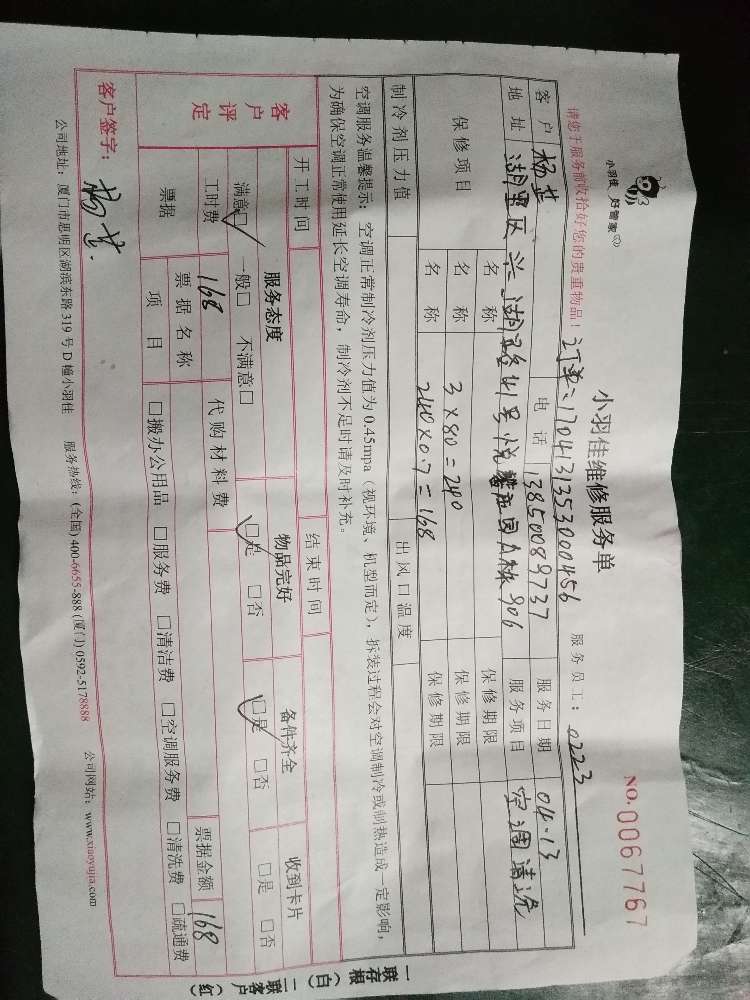 小羽佳 好管家
小羽佳维修服务单
NO.0067767
请您于服务前收拾好您的贵重物品！ 订单:170413135300456 服务员工：0223
客户 杨芷 电话 13850089737 服务日期 04.13
地址 湖里区兴湖路41号悦 A栋906 服务项目 空调清洗
保修项目 名称 保修期限
名称 3×80=240 保修期限
名称 240×0.7=168 保修期限
制冷剂压力值 出风口温度
空调服务温馨提示：空调正常制冷剂压力值为0.45mpa（视环境、机型而定），拆装过程会对空调制冷或制热造成一定影响，
为确保空调正常使用延长空调寿命，制冷剂不足时请及时补充。
开工时间 结束时间
客户评定 服务态度 物品完好 备件齐全 收到卡片
满意☑ 一般□ 不满意□ ☑是 □否 ☑是 □否 □是 □否
工时费 168 代购材料费 票据金额 168
票据 票据名称
项目 □搬办公用品 □服务费 □清洁费 □空调服务费 □清洗费 □疏通费
客户签字： 杨芷
公司地址：厦门市思明区湖滨东路319号D幢小羽佳 服务热线：(全国)400-6655-888(厦门)0592-5178888 公司网站：www.xiaoyujia.com
一联存根（白）二联客户（红）